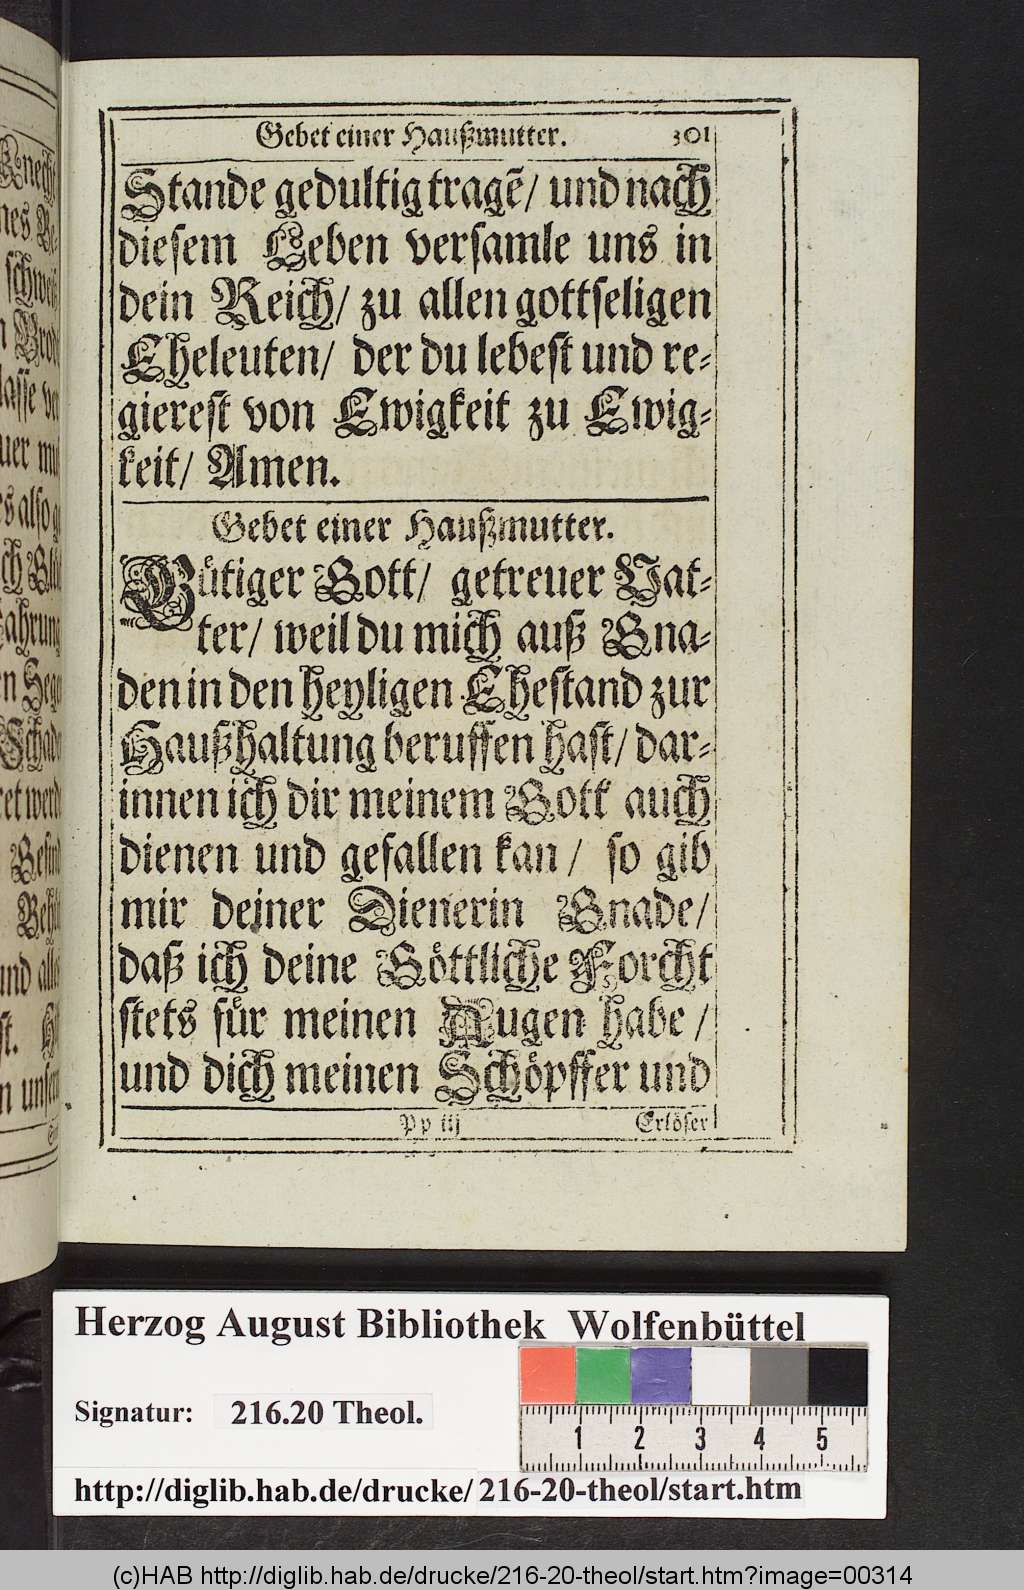 Gebet einer Haußmutter. 301
Stande gedultig tragẽ/ und nach
diesem Leben versamle uns in
dein Reich/ zu allen gottseligen
Eheleuten/ der du lebest und re-
gierest von Ewigkeit zu Ewig-
keit/ Amen.
Gebet einer Haußmutter.
Gütiger Gott/ getreuer Vat-
ter/ weil du mich auß Gna-
den in den heyligen Ehestand zur
Haußhaltung beruffen hast/ dar-
innen ich dir meinem Gott auch
dienen und gefallen kan/ so gib
mir deiner Dienerin Gnade/
daß ich deine Göttliche Forcht
stets für meinen Augen habe/
und dich meinen Schöpffer und
Pp iij Erlöser
Herzog August Bibliothek Wolfenbüttel
Signatur: 216.20 Theol.
1 2 3 4 5
http://diglib.hab.de/drucke/216-20-theol/start.htm
(c)HAB http://diglib.hab.de/drucke/216-20-theol/start.htm?image=00314